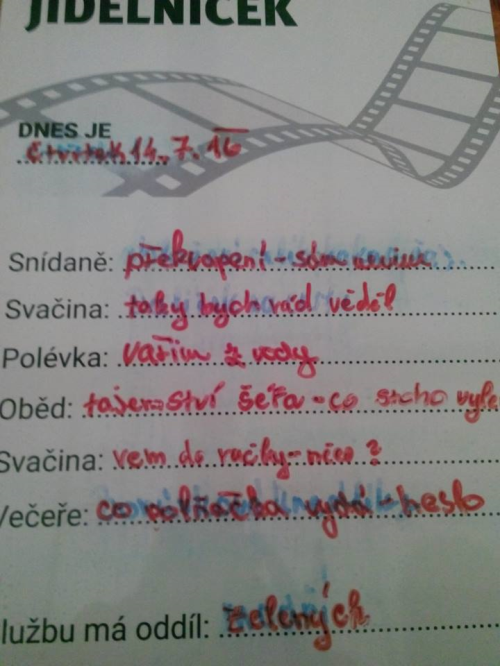 JÍDELNÍČEK
DNES JE
čtvrtek 14. 7. 16
Snídaně: překvapení - sám nevím
Svačina: taky bych rád věděl
Polévka: vařím z vody
Oběd: tajemství šéfa - co z toho vyle
Svačina: vem do ručiky - něco ?
Večeře: co polňačka vydá - heslo
lužbu má oddíl: zelených